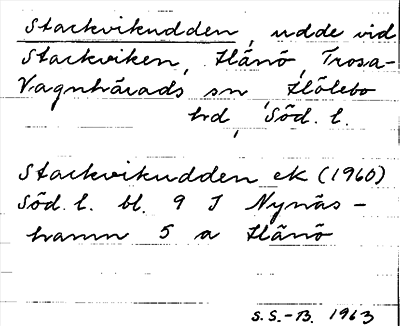 Stackvikudden, udde vid
Stackviken, Hånö, Trosa-
Vagnhärads sn, Hölebo
hd, Söd. l.
Stackvikudden ek (1960)
Söd. l. bl. 9 I Nynäs-
hamn 5 a Hånö
S.S.-B. 1963